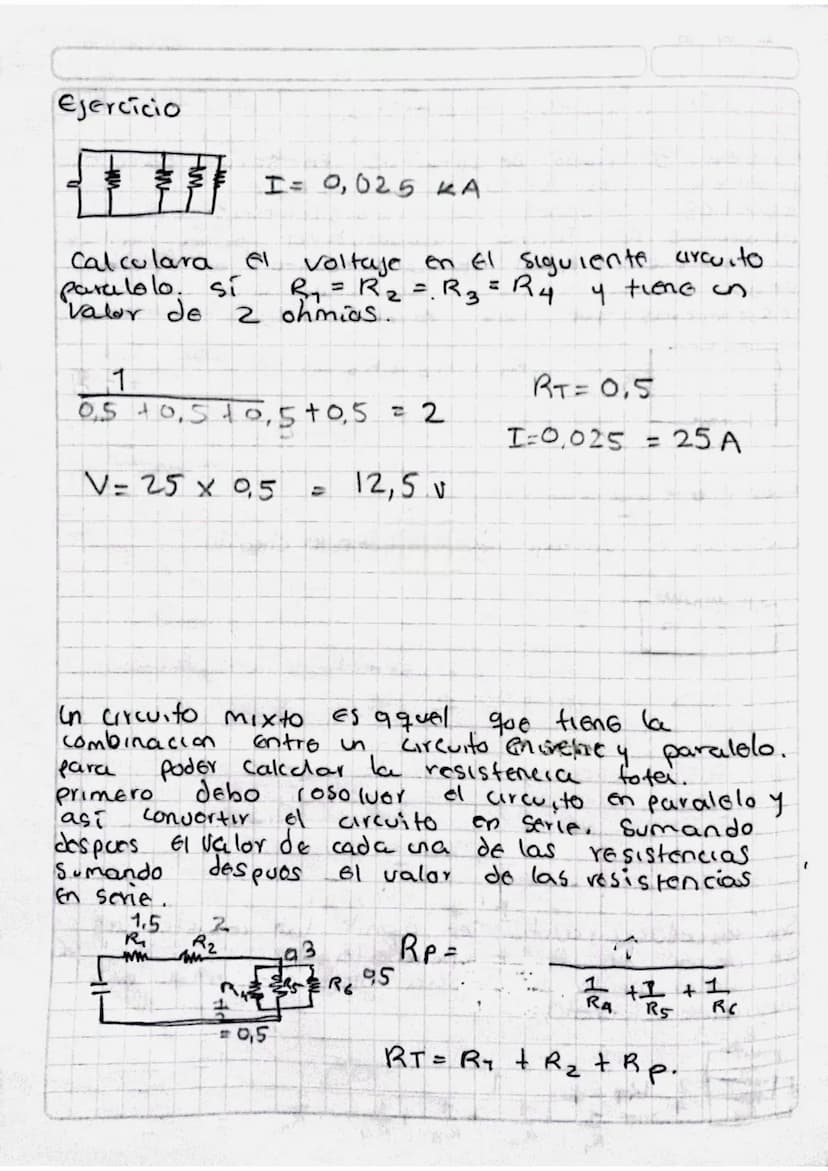 Ejercicio
I = 0,025 KA
Calculara el voltaje en El siguiente circuito
paralelo. sí R1 = R2 = R3 = R4 y tiene un
valor de 2 ohmios.
1
0,5 + 0,5 + 0,5 + 0,5 = 2
RT = 0,5
I=0,025 = 25 A
V = 25 x 0,5 = 12,5 v
Un circuito mixto es aquel que tiene la
combinacion entre un circuito y paralelo.
para poder calcular la resistencia total.
primero debo resolver el circuito en paralelo y
así convertir el circuito en serie. Sumando
despues El valor de cada una de las resistencias
Sumando despues el valor de las resistencias
En serie.
1,5 2
R1 R2
R4 R5 R6 0,5
= 0,5
Rp =
1/RA + 1/R5 + 1/R6
RT = R1 + R2 + Rp.